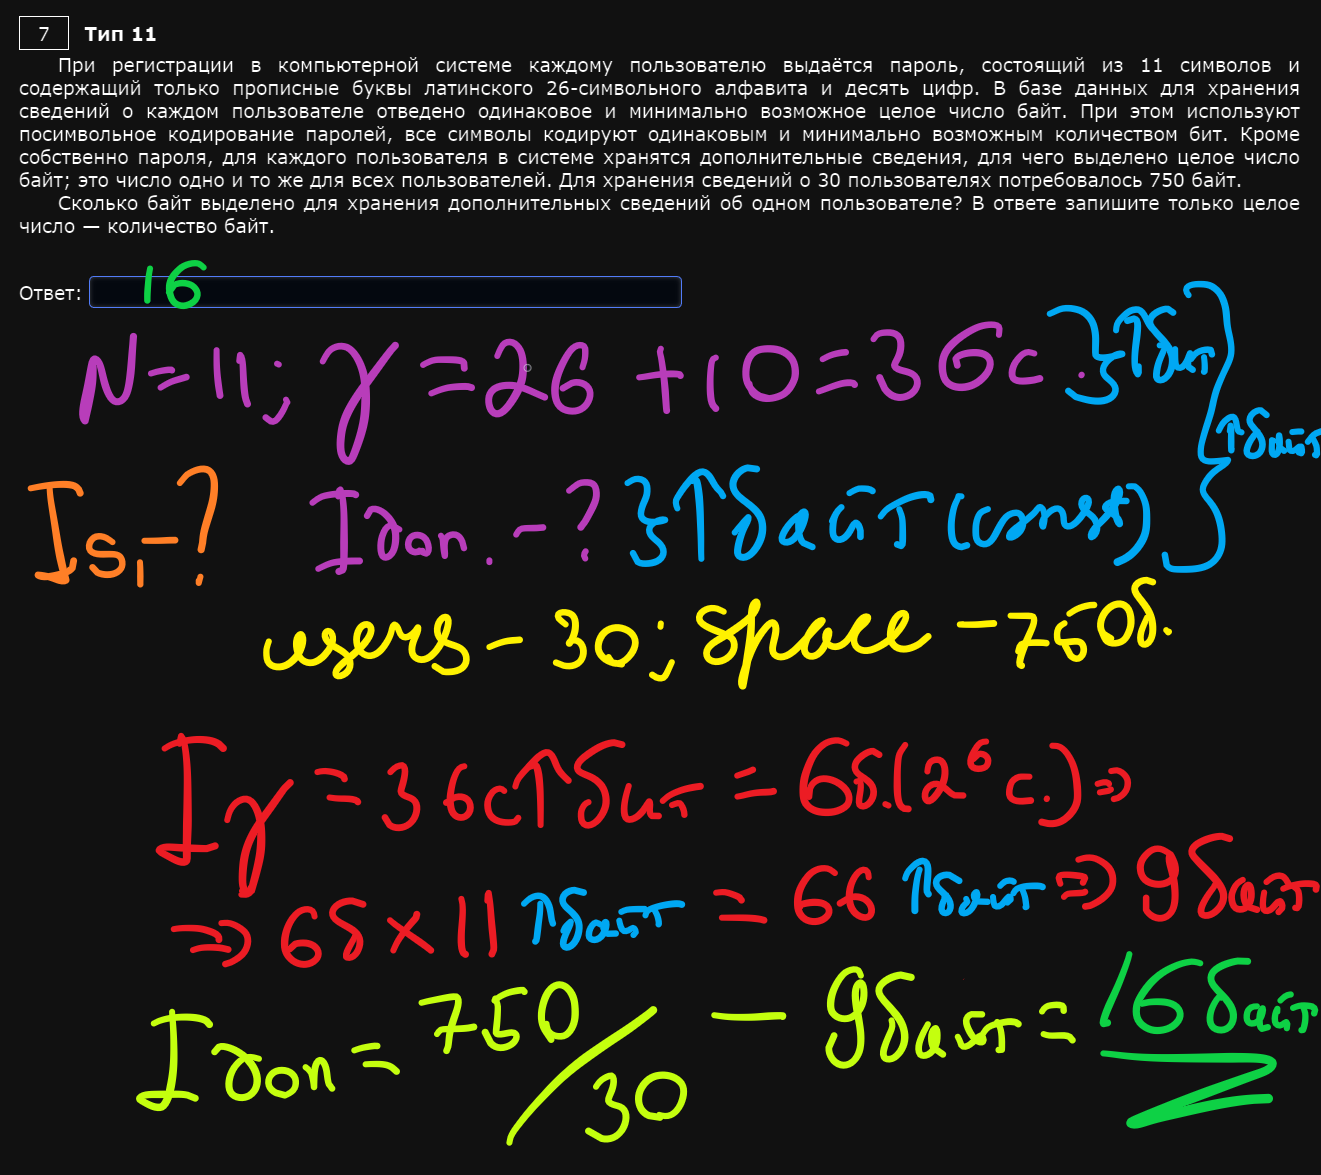 7 Тип 11
При регистрации в компьютерной системе каждому пользователю выдаётся пароль, состоящий из 11 символов и
содержащий только прописные буквы латинского 26-символьного алфавита и десять цифр. В базе данных для хранения
сведений о каждом пользователе отведено одинаковое и минимально возможное целое число байт. При этом используют
посимвольное кодирование паролей, все символы кодируют одинаковым и минимально возможным количеством бит. Кроме
собственно пароля, для каждого пользователя в системе хранятся дополнительные сведения, для чего выделено целое число
байт; это число одно и то же для всех пользователей. Для хранения сведений о 30 пользователях потребовалось 750 байт.
Сколько байт выделено для хранения дополнительных сведений об одном пользователе? В ответе запишите только целое
число — количество байт.
Ответ: 16
N=11; γ=26+10=36с. }↑бит
}↑байт
Is₁-? Iдоп.-? }↑байт(const)
users-30; space-750б.
Iγ=36с↑бит=6б.(2⁶с.)⇒
⇒6б×11↑байт=66↑байт⇒9байт
Iдоп=750/30-9байт=16байт